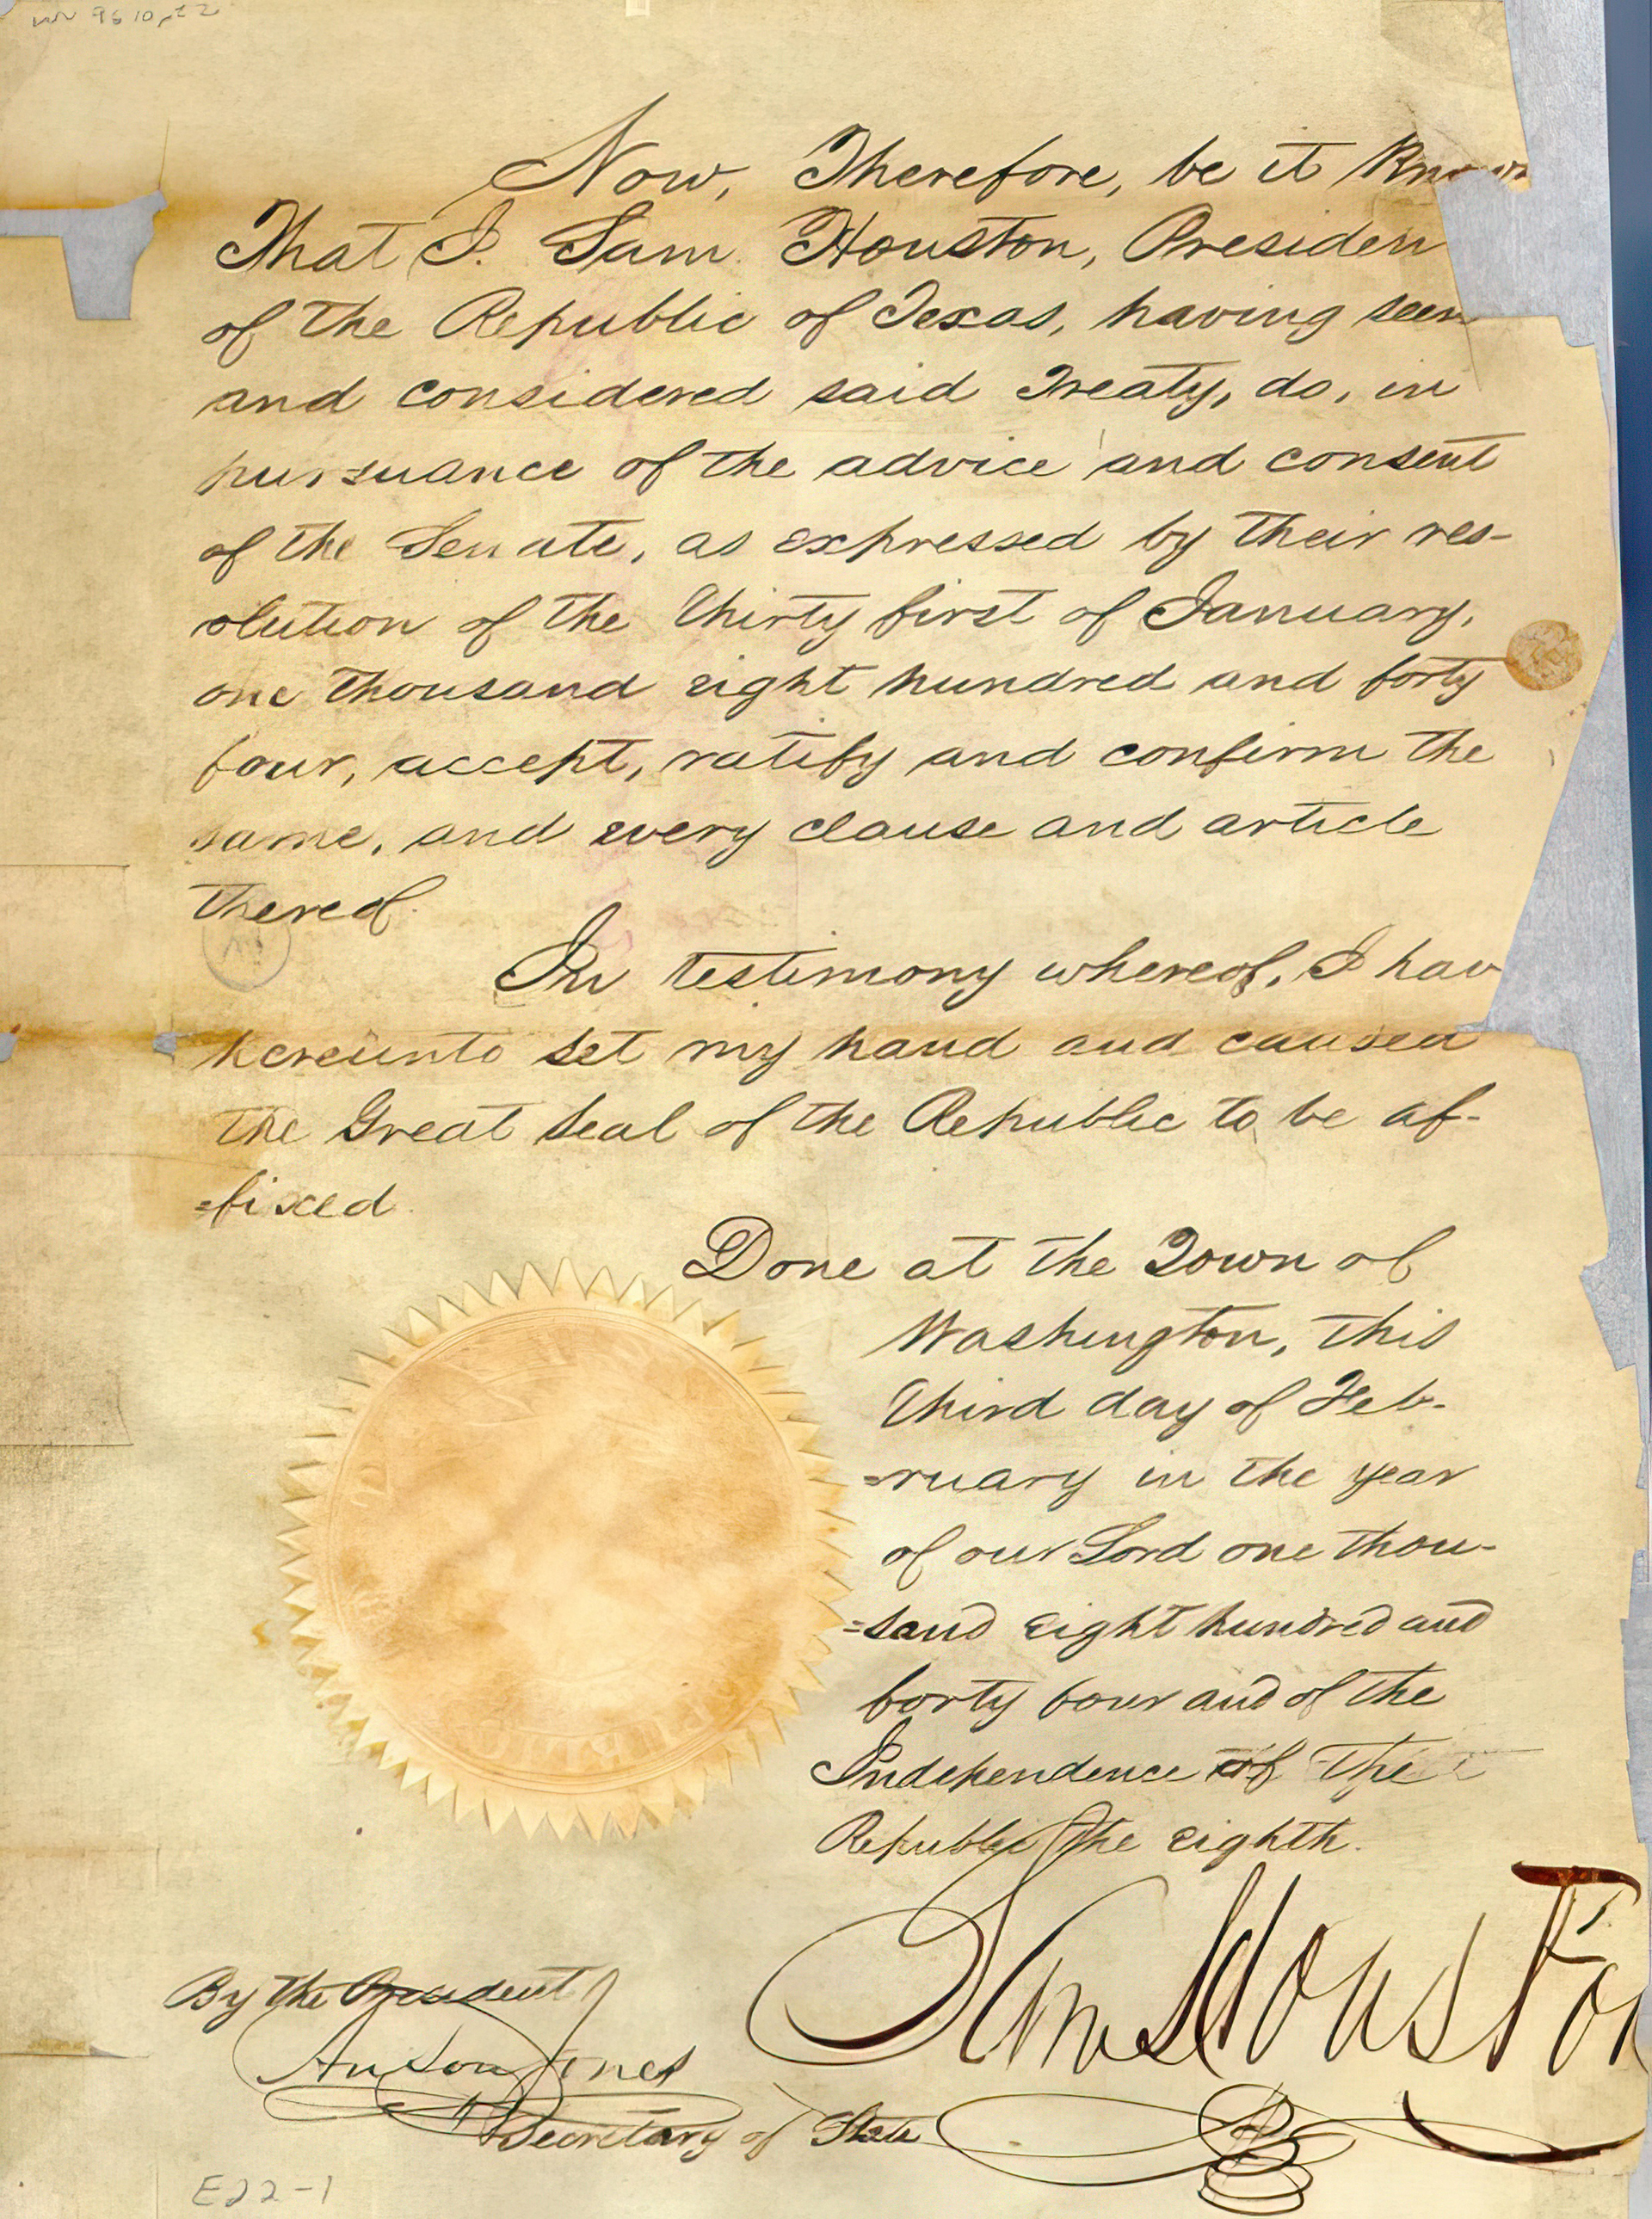 Now, Therefore, be it Known
That I. Sam Houston, Presiden
of the Republic of Texas, having seen
and considered said Treaty, do, in
pursuance of the advice and consent
of the Senate, as expressed by their res-
olution of the thirty first of January,
one thousand eight hundred and forty
four, accept, ratify and confirm the
same, and every clause and article
thereof.
In testimony whereof, I hav
hereunto set my hand and caused
the Great Seal of the Republic to be af-
=fixed.
Done at the Town of
Washington, this
third day of Feb-
=ruary in the year
of our Lord one thou-
=sand eight hundred and
forty four and of the
Independence of the
Republic the eighth.
Sam Houston
By the President
Anson Jones
Secretary of State
E22-1